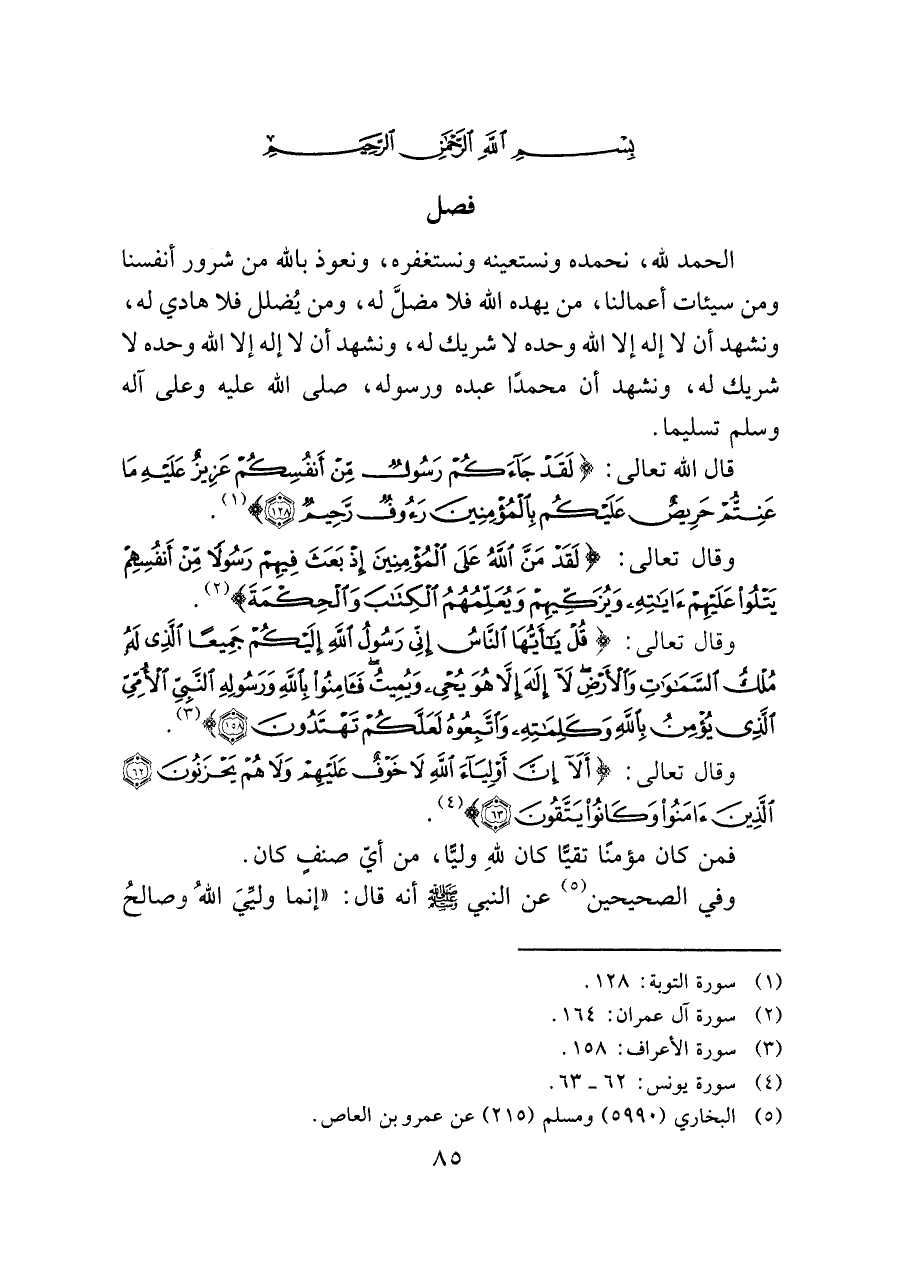 بِسْمِ اللَّهِ الرَّحْمَٰنِ الرَّحِيمِ
فصل
الحمد لله، نحمده ونستعينه ونستغفره، ونعوذ بالله من شرور أنفسنا
ومن سيئات أعمالنا، من يهده الله فلا مضلَّ له، ومن يُضلل فلا هادي له،
ونشهد أن لا إله إلا الله وحده لا شريك له، ونشهد أن لا إله إلا الله وحده لا
شريك له، ونشهد أن محمدًا عبده ورسوله، صلى الله عليه وعلى آله
وسلم تسليما.
قال الله تعالى: ﴿ لَقَدْ جَآءَكُمْ رَسُولٌ مِّنْ أَنفُسِكُمْ عَزِيزٌ عَلَيْهِ مَا
عَنِتُّمْ حَرِيصٌ عَلَيْكُم بِالْمُؤْمِنِينَ رَءُوفٌ رَّحِيمٌ ۝١٢٨﴾(١).
وقال تعالى: ﴿ لَقَدْ مَنَّ اللَّهُ عَلَى الْمُؤْمِنِينَ إِذْ بَعَثَ فِيهِمْ رَسُولًا مِّنْ أَنفُسِهِمْ
يَتْلُوا۟ عَلَيْهِمْ ءَايَٰتِهِۦ وَيُزَكِّيهِمْ وَيُعَلِّمُهُمُ الْكِتَٰبَ وَالْحِكْمَةَ﴾(٢).
وقال تعالى: ﴿ قُلْ يَٰٓأَيُّهَا النَّاسُ إِنِّى رَسُولُ اللَّهِ إِلَيْكُمْ جَمِيعًا الَّذِى لَهُۥ
مُلْكُ السَّمَٰوَٰتِ وَالْأَرْضِ ۖ لَآ إِلَٰهَ إِلَّا هُوَ يُحْىِۦ وَيُمِيتُ ۖ فَـَٔامِنُوا۟ بِاللَّهِ وَرَسُولِهِ النَّبِىِّ الْأُمِّىِّ
الَّذِى يُؤْمِنُ بِاللَّهِ وَكَلِمَٰتِهِۦ وَاتَّبِعُوهُ لَعَلَّكُمْ تَهْتَدُونَ ۝١٥٨﴾(٣).
وقال تعالى: ﴿ أَلَآ إِنَّ أَوْلِيَآءَ اللَّهِ لَا خَوْفٌ عَلَيْهِمْ وَلَا هُمْ يَحْزَنُونَ ۝٦٢
الَّذِينَ ءَامَنُوا۟ وَكَانُوا۟ يَتَّقُونَ ۝٦٣﴾(٤).
فمن كان مؤمنًا تقيًّا كان للهِ وليًّا، من أيّ صنفٍ كان.
وفي الصحيحين(٥) عن النبي ﷺ أنه قال: «إنما وليِّيَ اللهُ وصالحُ
(١) سورة التوبة: ١٢٨.
(٢) سورة آل عمران: ١٦٤.
(٣) سورة الأعراف: ١٥٨.
(٤) سورة يونس: ٦٢ ـ ٦٣.
(٥) البخاري (٥٩٩٠) ومسلم (٢١٥) عن عمرو بن العاص.
٨٥